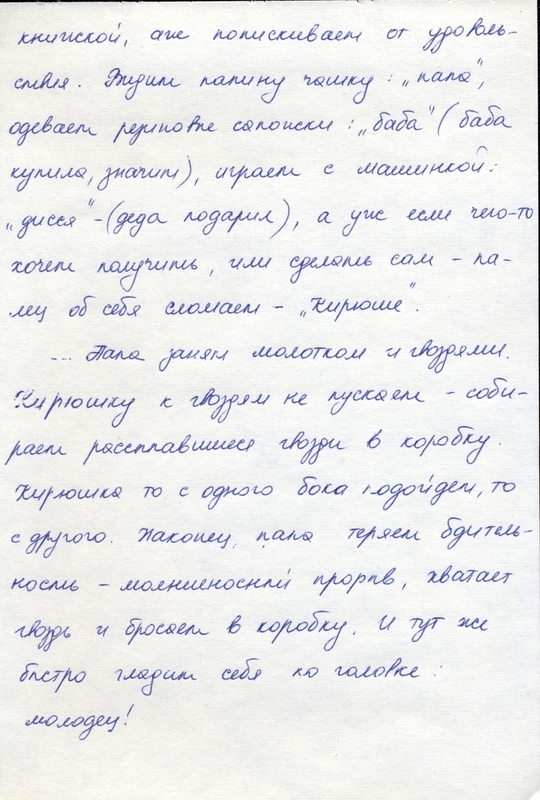 книжкой, аж попискивает от удоволь-
ствия. Видит папину чашку: „папа",
одевает резиновые сапожки: „баба" (баба
купила, значит), играет с машинкой:
„дисся" - (деда подарил), а уж если чего-то
хочет получить, или сделать сам - па-
лец об себя сломает - „Кирюше".
... Папа занят молотком и гвоздями.
Кирюшку к гвоздям не пускает - соби-
рает рассыпавшиеся гвозди в коробку.
Кирюшка то с одного бока подойдет, то
с другого. Наконец, папа теряет бдитель-
ность - молниеносный прорыв, хватает
гвоздь и бросает в коробку. И тут же
быстро гладит себя по головке:
молодец!